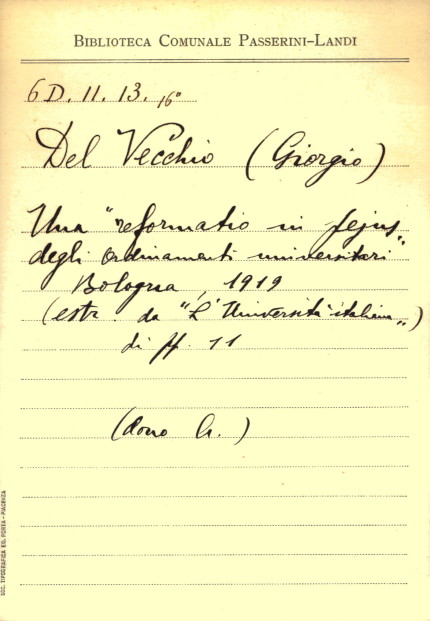 BIBLIOTECA COMUNALE PASSERINI-LANDI
6 D. 11. 13. 16°
Del Vecchio (Giorgio)
Una "reformatio in pejus"
degli ordinamenti universitari"
Bologna, 1919
(estr. da "L'Università italiana„)
di pp. 11
(dono A.)
SOC. TIPOGRAFICA ED. PORTA - PIACENZA